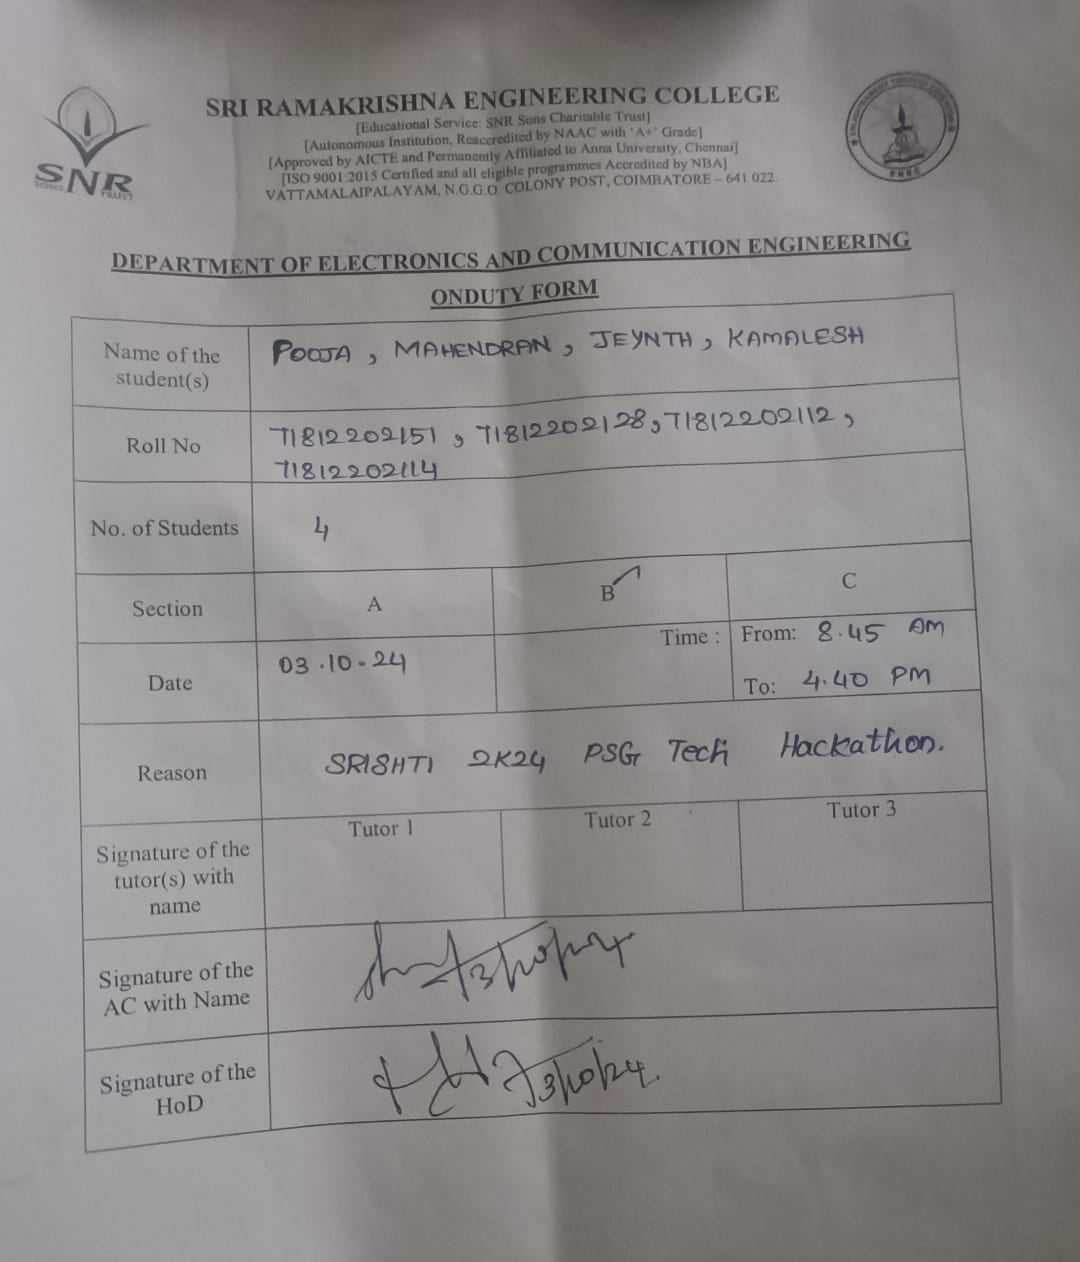 SRI RAMAKRISHNA ENGINEERING COLLEGE
[Educational Service: SNR Sons Charitable Trust]
[Autonomous Institution, Reaccredited by NAAC with 'A+' Grade]
[Approved by AICTE and Permanently Affiliated to Anna University, Chennai]
[ISO 9001:2015 Certified and all eligible programmes Accredited by NBA]
VATTAMALAIPALAYAM, N.G.G.O. COLONY POST, COIMBATORE – 641 022.
SNR
SONS TRUST
DEPARTMENT OF ELECTRONICS AND COMMUNICATION ENGINEERING
ONDUTY FORM
Name of the student(s) POOJA, MAHENDRAN, JEYNTH, KAMALESH
Roll No 71812202151, 71812202128, 71812202112,
71812202114
No. of Students 4
Section A B C
Date 03.10.24 Time : From: 8.45 AM
To: 4.40 PM
Reason SRISHTI 2K24 PSG Tech Hackathon.
Signature of the tutor(s) with name Tutor 1 Tutor 2 Tutor 3
Signature of the AC with Name 3/10/24
Signature of the HoD 3/10/24.